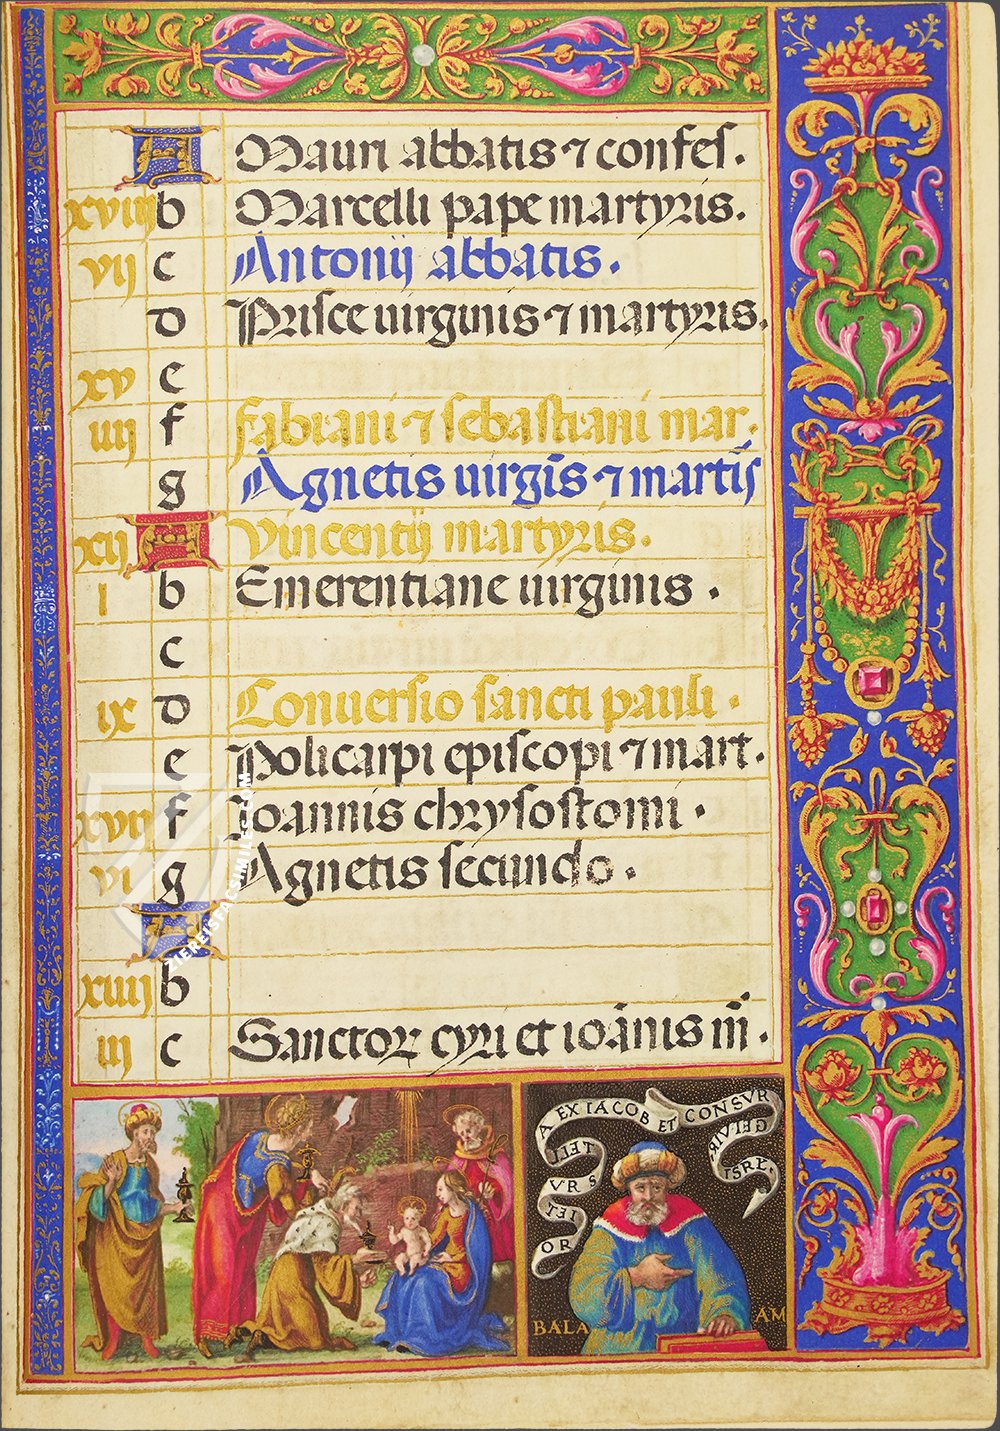 A Mauri abbatis ⁊ confes.
xviii b Marcelli pape martyris.
vij c Antonij abbatis.
d Prisce uirginis ⁊ martyris.
xv e
iiij f fabiani ⁊ sebastiani mar.
g Agnetis uirgīs ⁊ martīs
xij A Vincentij martyris.
i b Emerentiane uirginis.
c
ix d Conuersio sancti pauli.
e Policarpi episcopi ⁊ mart.
xvij f Ioannis chrysostomi.
vi g Agnetis secundo.
A
xiiij b
iij c Sanctoꝝ cyri et ioānis m̄.
ORIETUR STELLA EX IACOB ET CONSVRGET VIR ISRL.
BALAAM
ZIEREISFACSIMILES.COM